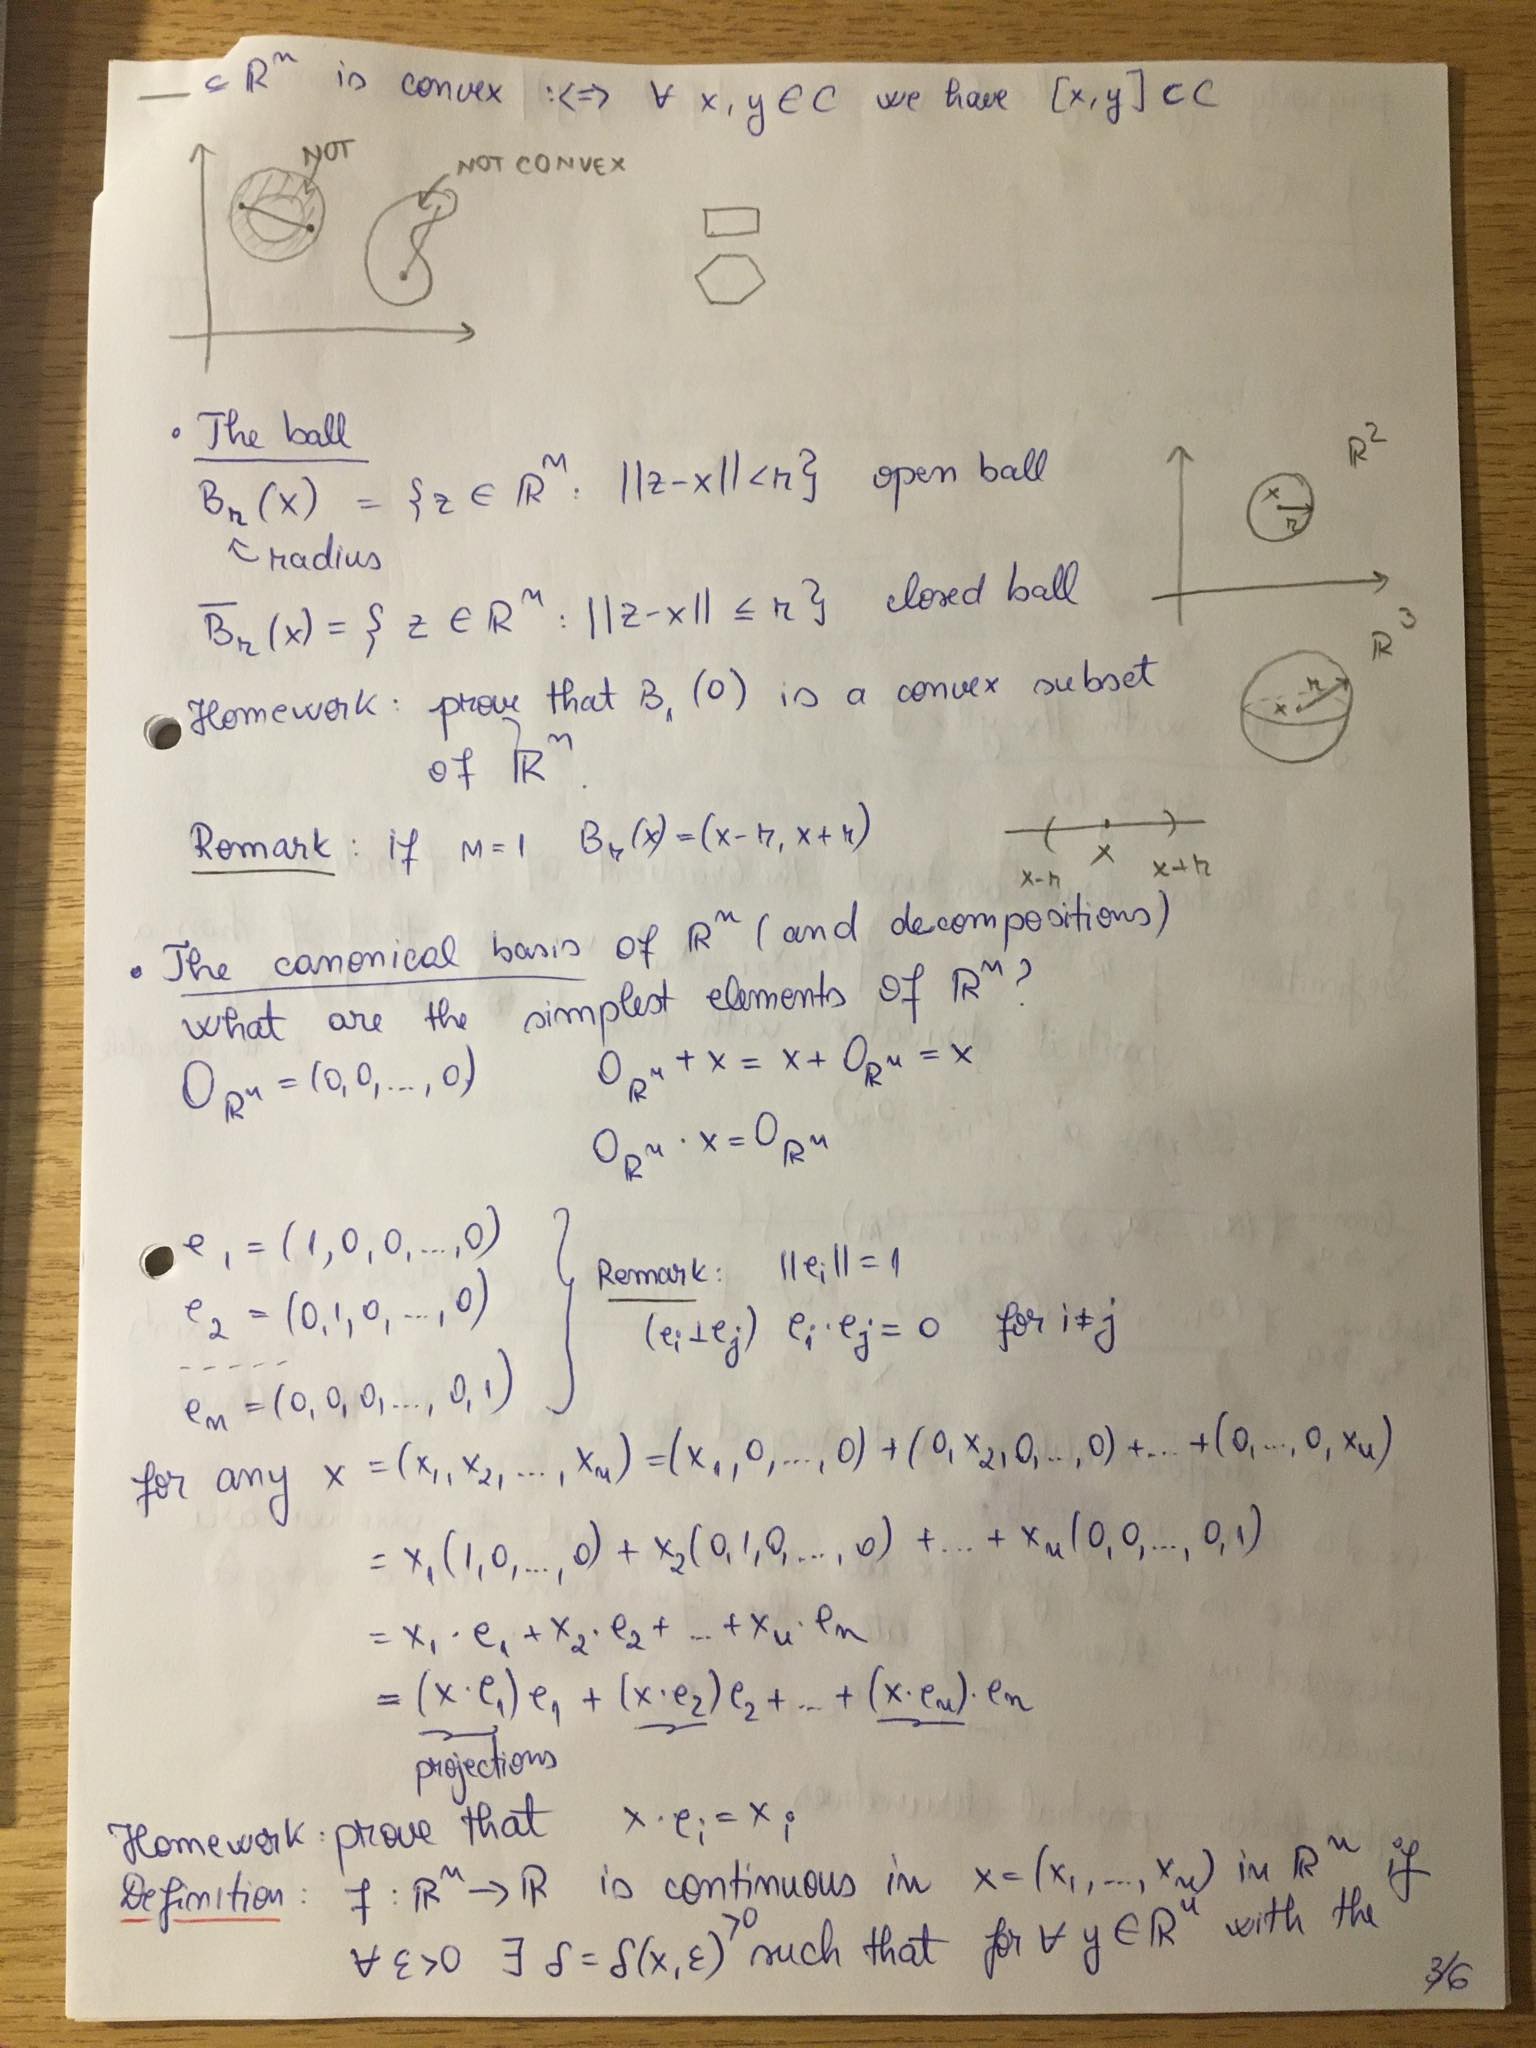 ⊂ ℝⁿ is convex :<=> ∀ x, y ∈ C we have [x,y] ⊂ C
NOT
NOT CONVEX
• The ball
B_r(x) = {z ∈ ℝⁿ: ||z-x|| < r} open ball
ℝ²
x
r
↖ radius
B̅_r(x) = { z ∈ ℝⁿ : ||z-x|| ≤ r} closed ball
ℝ³
Homework: prove that B₁(0) is a convex subset
of ℝⁿ.
x r
Remark: if n=1 B_r(x)=(x-r, x+r)
x-r x x+r
• The canonical basis of ℝⁿ (and decompositions)
what are the simplest elements of ℝⁿ?
0_ℝⁿ = (0,0,...,0) 0_ℝⁿ + x = x + 0_ℝⁿ = x
0_ℝⁿ · x = 0_ℝⁿ
e₁ = (1,0,0,...,0)
e₂ = (0,1,0,...,0)
------
eₙ = (0,0,0,...,0,1)
Remark: ||eᵢ|| = 1
(eᵢ⊥eⱼ) eᵢ·eⱼ = 0 for i≠j
for any x = (x₁, x₂, ..., xₙ) = (x₁,0,...,0) + (0,x₂,0,...,0) +...+(0,...,0,xₙ)
= x₁(1,0,...,0) + x₂(0,1,0,...,0) +...+ xₙ(0,0,...,0,1)
= x₁·e₁ + x₂·e₂ + ... + xₙ·eₙ
= (x·e₁)e₁ + (x·e₂)e₂ + ... + (x·eₙ)·eₙ
projections
Homework: prove that x·eᵢ = xᵢ
Definition: f : ℝⁿ → ℝ is continuous in x=(x₁,...,xₙ) in ℝⁿ if
∀ ε>0 ∃ δ = δ(x,ε)>0 such that for ∀ y ∈ ℝⁿ with the
3/6